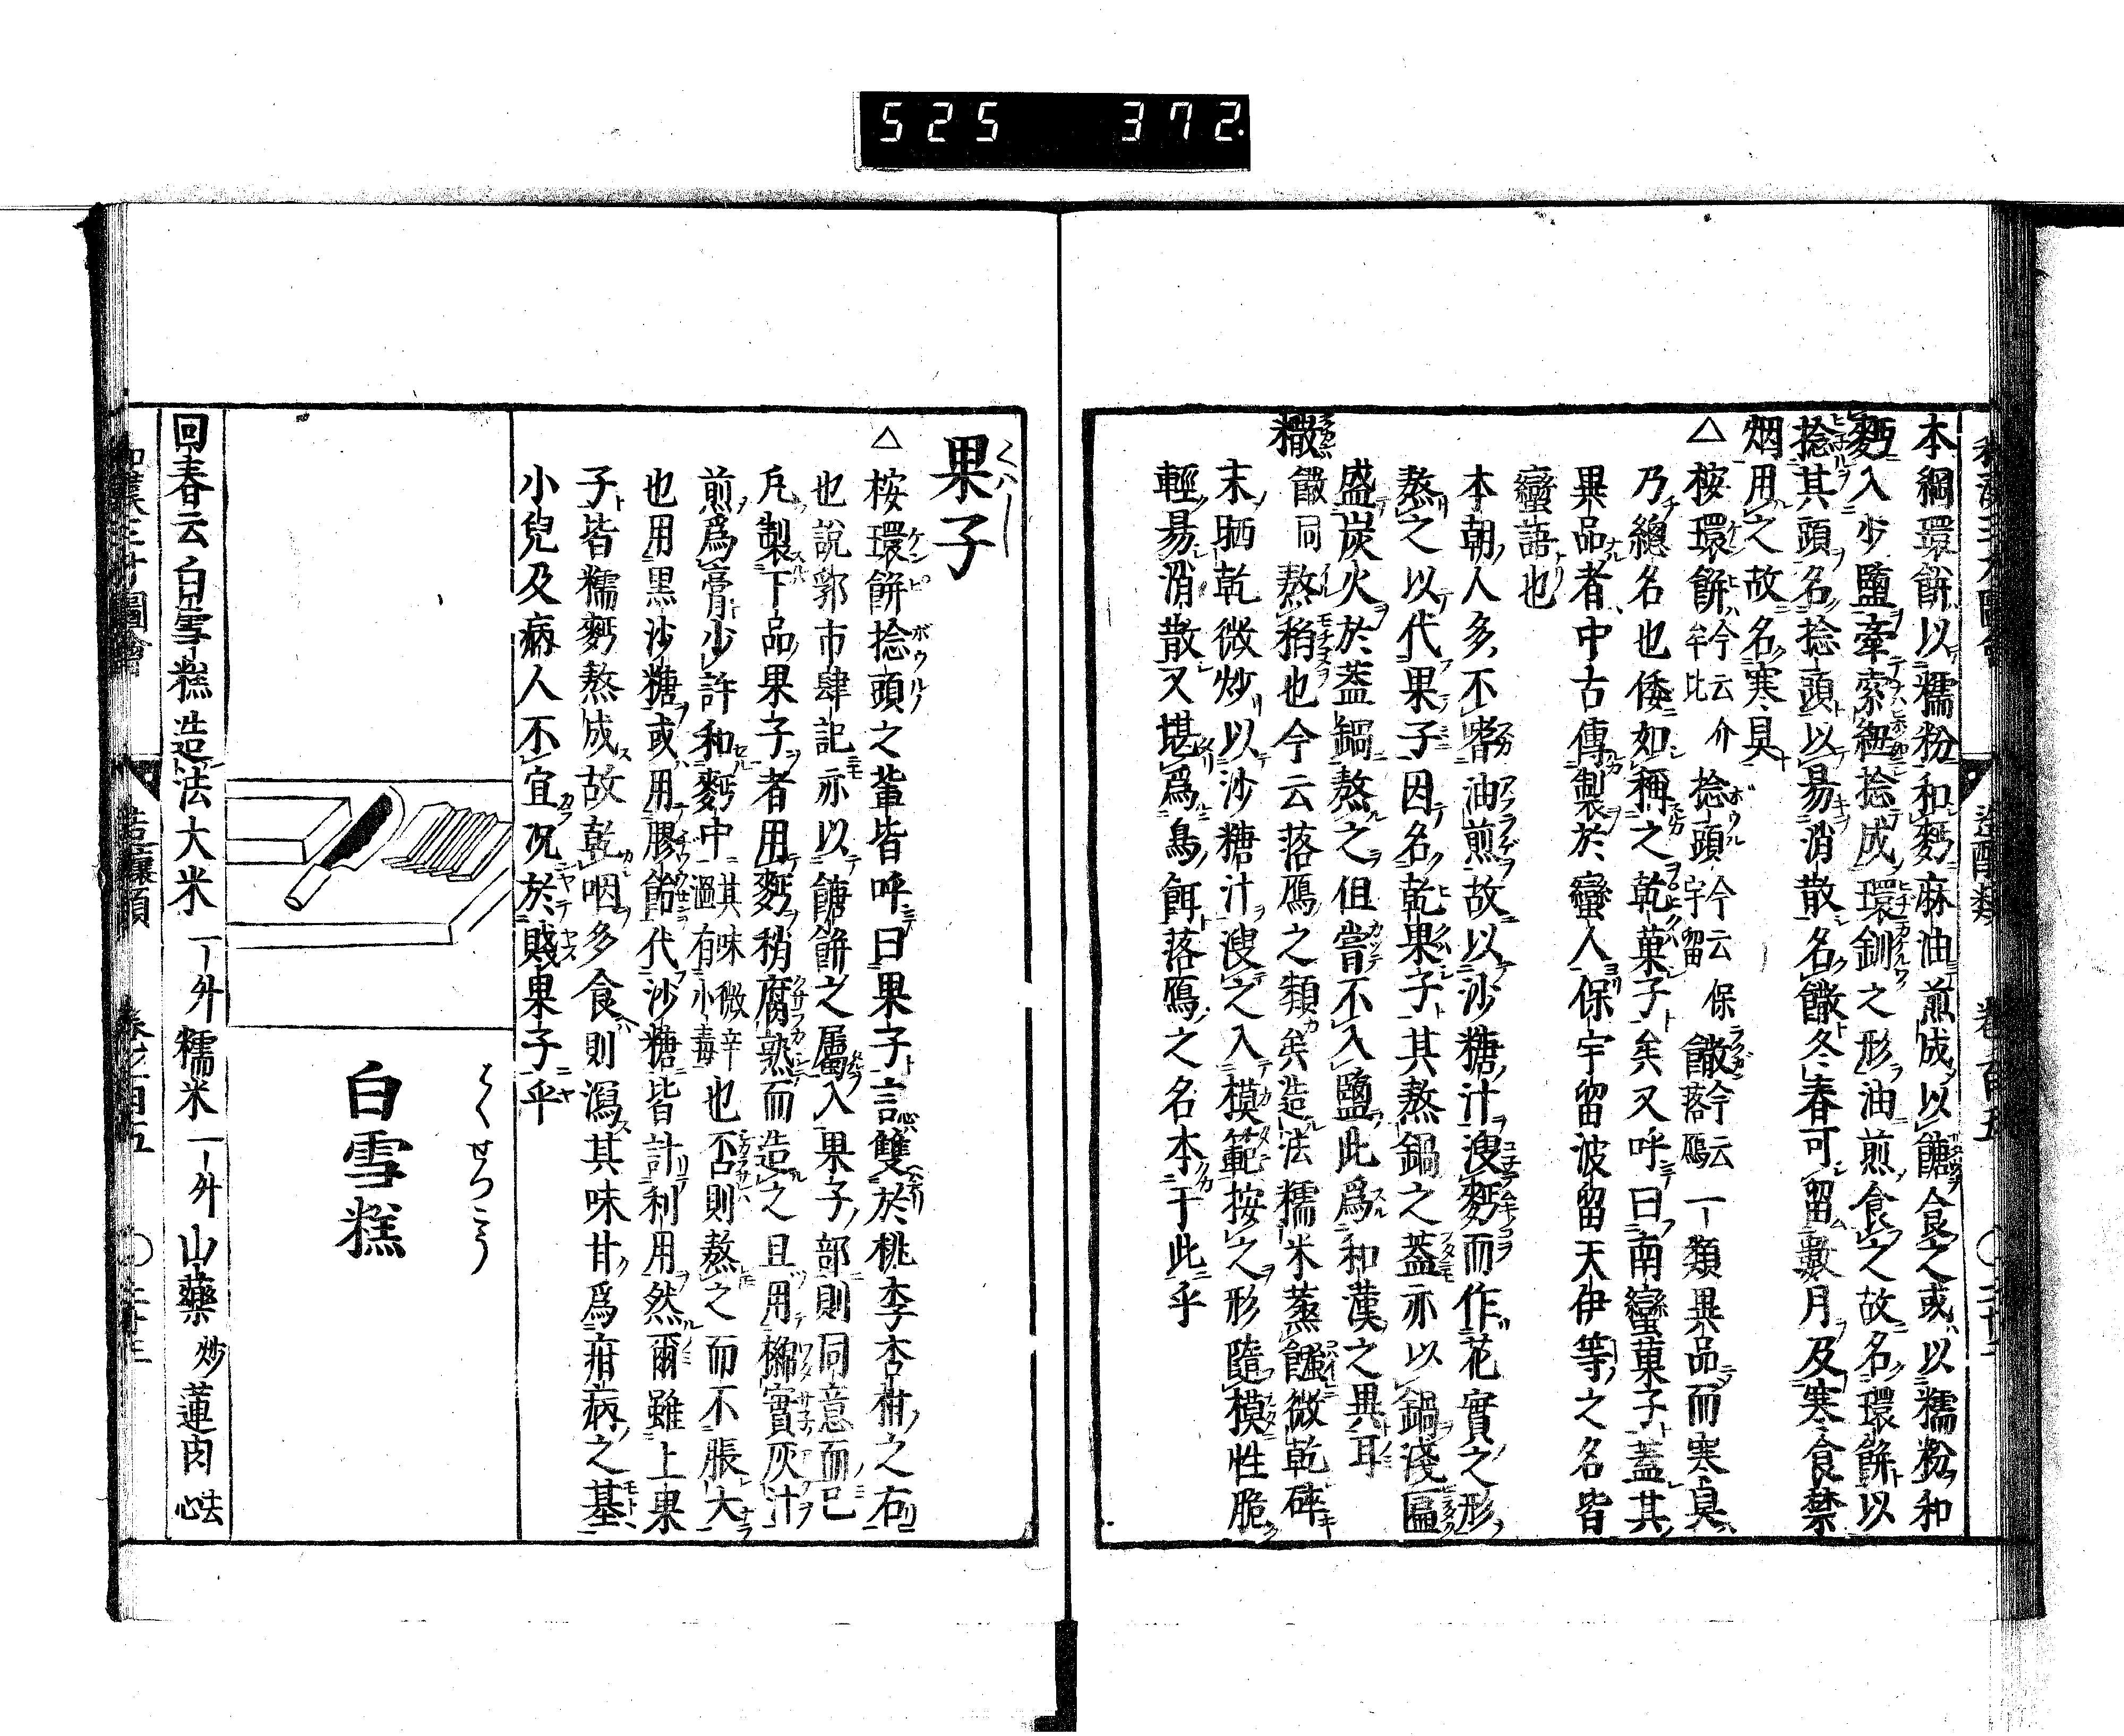 525 372.
本綱環餅以糯粉和麪麻油煎成以餹食之或以糯粉和
麪入少鹽牽索紐捻成環釧之形油煎食之故名環餅以
捻其頭名捻頭以易消散名饊冬春可留數月及寒食禁
烟用之故名寒具
△桉環餅今云介牟比捻頭今云保宇留饊今云落鴈一類異品而寒具
乃總名也倭如稱之乾菓子矣又呼曰南蠻菓子蓋其
異品者中古傳製於蠻人保宇留波留天伊等之名皆
蠻語也
本朝人多不嗜油煎故以沙糖汁溲麪而作花實之形
熬之以代果子因名乾果子其熬鍋之蓋亦以鍋淺匾
盛炭火於蓋鍋熬之但嘗不入鹽此爲和漢之異耳
糤饊同熬稻也今云落鴈之類矣造法糯米蒸䭔微乾碎
末晒乾微炒以沙糖汁溲之入模範按之形隨模性脆
輕易消散又堪爲鳥餌落鴈之名本于此乎
果子
くハし
△桉環餅捻頭之軰皆呼曰果子言雙於桃李杏柑之右
也說郛市肆記亦以餹餅之屬入果子部則同意而已
凡製下品果子者用麪稍腐熟而造之且用橅實灰汁
煎爲膏少許和麪中其味微辛溫有小毒也否則熬之而不脹大
也用黒沙糖或用膠飴代沙糖皆計利用然爾雖上果
子皆糯麪熬成故乾咽多食則瀉其味甘爲疳病之基
小兒及病人不宜况於賤果子乎
はくせつこう
白雪糕
回春云白雪糕造法大米一升糯米一升山藥炒蓮肉去心